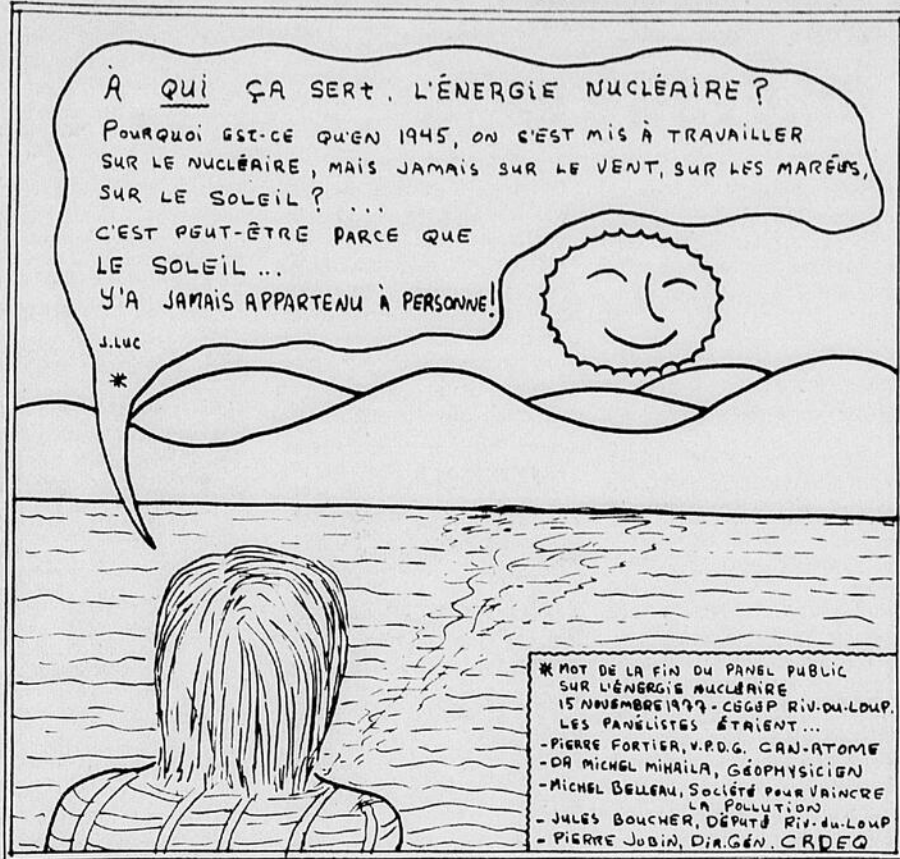 À QUI ÇA SERT, L'ÉNERGIE NUCLÉAIRE?
POURQUOI EST-CE QU'EN 1945, ON S'EST MIS À TRAVAILLER
SUR LE NUCLÉAIRE, MAIS JAMAIS SUR LE VENT, SUR LES MARÉES,
SUR LE SOLEIL? ...
C'EST PEUT-ÊTRE PARCE QUE
LE SOLEIL...
Y'A JAMAIS APPARTENU À PERSONNE!
J.LUC
*
* MOT DE LA FIN DU PANEL PUBLIC
SUR L'ÉNERGIE NUCLÉAIRE
15 NOVEMBRE 1977 - CEGEP RIV-DU-LOUP.
LES PANÉLISTES ÉTAIENT...
- PIERRE FORTIER, V.P.D.G. CAN-ATOME
- DR MICHEL MIHAILA, GÉOPHYSICIEN
- MICHEL BELLEAU, SOCIÉTÉ POUR VAINCRE
LA POLLUTION
- JULES BOUCHER, DÉPUTÉ RIV-DU-LOUP
- PIERRE JOBIN, DIR.GÉN. CRDEQ